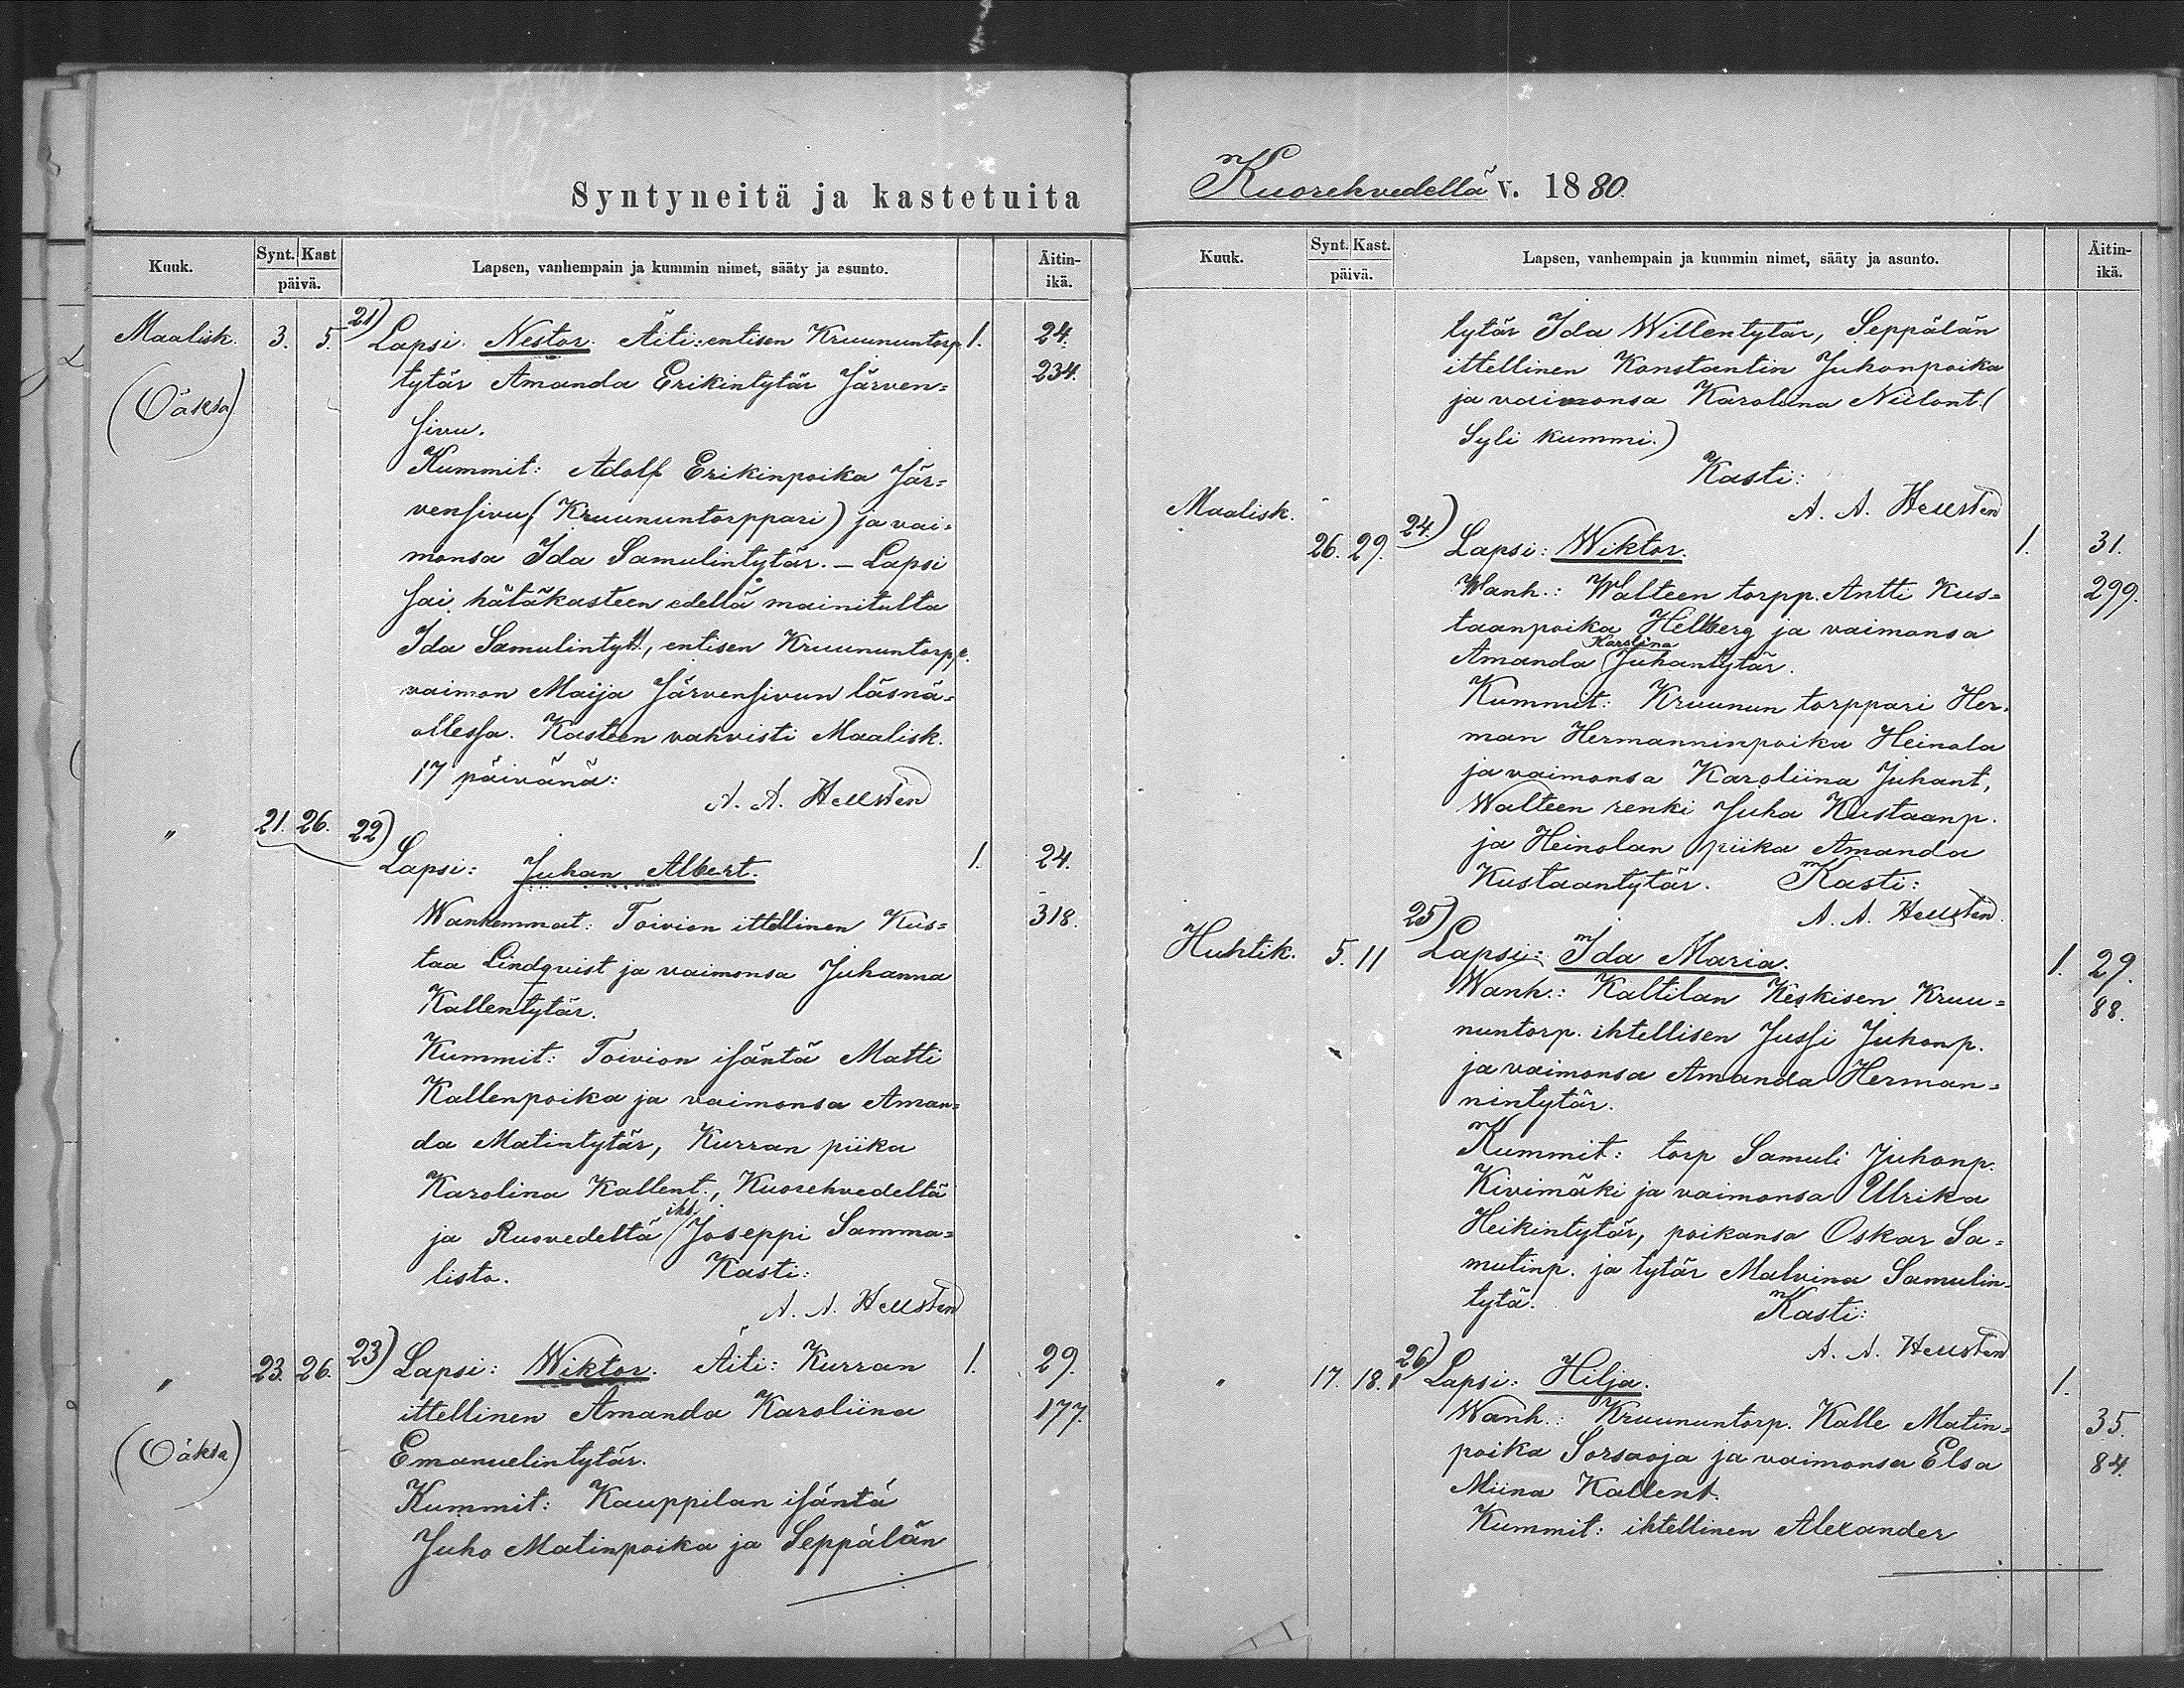 Syntyneitä ja kastetuita
Kuuk. Synt. Kast päivä. Lapsen, vanhempain ja kummin nimet, sääty ja asunto. Äitin-ikä.
Maalisk. 3. 5. 21) Lapsi: Nestor. Äiti: entisen Kruununtorp. 1. 24.
tytär Amanda Erikintytär Järven= 234.
(Oäkta)
sivu.
Kummit: Adolf Erikinpoika Jär=
vensivu, (Kruununtorppari) ja vai=
monsa Ida Samulintytär. — Lapsi
sai hätäkasteen edellä mainitulta
Ida Samulintyt., entisen Kruununtorpp.
vaimon Maija Järvensivun läsnä=
ollessa. Kasteen vahvisti Maalisk.
17 päivänä:
A. A. Hellsten
" 21. 26. 22)
Lapsi: Juhan Albert. 1. 24.
Wanhemmat: Toivion ittellinen Kus= 318.
taa Lindqvist ja vaimonsa Juhanna
Kallentytär.
Kummit: Toivion isäntä Matti
Kallenpoika ja vaimonsa Aman=
da Matintytär, Kurran piika
Karolina Kallent., Kuorehvedeltä
ja Ruovedeltä iht. Joseppi Samma=
listo. Kasti:
A. A. Hellsten
" 23. 26. 23) Lapsi: Wiktor. Äiti: Kurran 1. 29.
ittellinen Amanda Karoliina 177.
(Oäkta)
Emanuelintytär.
Kummit: Kauppilan isäntä
Juho Matinpoika ja Seppälän
Kuorehvedellä v. 1880.
Kuuk. Synt. Kast. päivä. Lapsen, vanhempain ja kummin nimet, sääty ja asunto. Äitin-ikä.
tytär Ida Willentytär, Seppälän
ittellinen Konstantin Juhonpoika
ja vaimonsa Karoliina Niilont. (
Syli kummi.)
Kasti:
A. A. Hellsten
Maalisk.
26. 29. 24) Lapsi: Wiktor. 1. 31.
Wanh.: Walteen torpp. Antti Kus= 299.
taanpoika Hellberg ja vaimonsa
Amanda Karolina Juhantytär.
Kummit: Kruunun torppari Her=
man Hermanninpoika Heinola
ja vaimonsa Karoliina Juhant,
Walteen renki Juha Kustaanp.
ja Heinolan piika Amanda
Kustaantytär. Kasti:
A. A. Hellsten.
Huhtik. 5. 11 25) Lapsi: Ida Maria. 1. 29.
Wanh.: Kaltilan Keskisen Kruu= 88.
nuntorp. ihtellisen Jussi Juhonp.
ja vaimonsa Amanda Herman=
nintytär.
Kummit: torp Samuli Juhonp.
Kivimäki ja vaimonsa Ulrika
Heikintytär, poikansa Oskar Sa=
mulinp. ja tytär Malvina Samulin=
tytä. Kasti:
A. A. Hellsten
" 17. 18. 26) Lapsi: Hilja. 1.
Wanh.: Kruununtorp. Kalle Matin= 35.
poika Sorsaoja ja vaimonsa Elsa 84.
Miina Kallent.
Kummit: ihtellinen Alexander